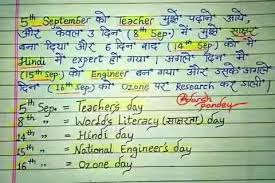 5th September को Teacher मुझे पढ़ाने आये,
और केवल 3 दिन (8th Sep.) में मुझे साक्षर
बना दिया और 6 दिन बाद (14th Sep) को मैं
Hindi में expert हो गया। अगले दिन
(15th Sep) को Engineer बन गया और उसके अगले
दिन (16th Sep) को Ozone पर Research कर डाली।
Adarsh pandey
5th Sep. = Teacher's day
8th " = World's Literacy (साक्षरता) day
14th " = Hindi day
15th " = National Engineer's day
16th " = Ozone day